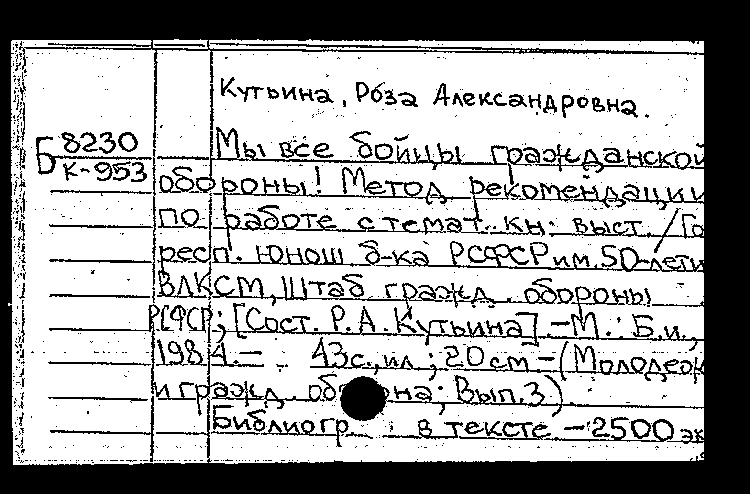 Кутьина, Роза Александровна.
Б 8230
К-953
Мы все бойцы гражданской
обороны! Метод. рекомендации
по работе с темат. кн. выст. / Го
респ. юнош. б-ка РСФСР им. 50-лети
ВЛКСМ, Штаб гражд. обороны
РСФСР; [Сост. Р. А. Кутьина]. - М.: Б.и.,
1984. - 43 с., ил.; 20 см - (Молодеж
и гражд. об на; Вып. 3)
Библиогр. в тексте - 2500 эк